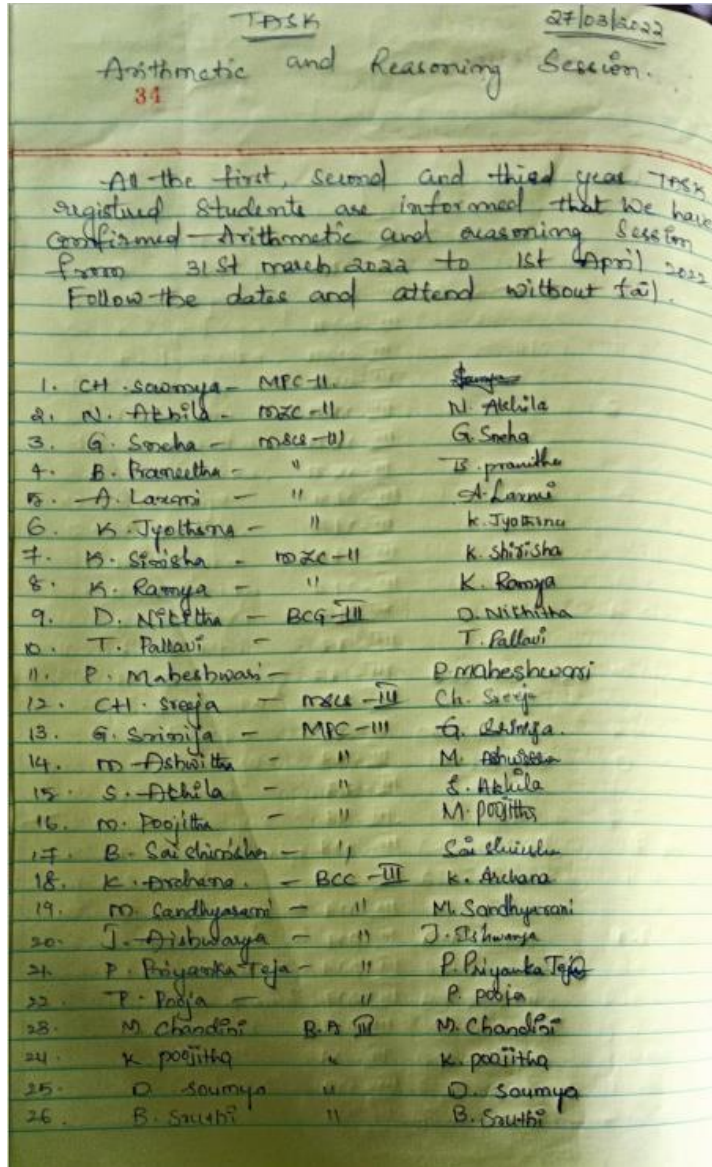 TASK 27/03/2022
Arithmetic and Reasoning Session.
34
All the first, second and third year TASK
registued students are informed that we have
confirmed Arithmetic and reasoning Session
from 31st march 2022 to 1st April 2022
Follow the dates and attend without fail.
1. CH. Sowmya - MPC-II.
2. N. Akhila - MZC-II N. Akhila
3. G. Sneha - MSCS-III G. Sneha
4. B. Praneetha - " B. pranitha
5. A. Laxmi - " A. Laxmi
6. K. Jyothsna - " K. Jyothsna
7. K. Sirisha - MZC-II K. Shirisha
8. K. Ramya - " K. Ramya
9. D. Nikitha - BCG-III D. Nikhitha
10. T. Pallavi - T. Pallavi
11. P. Maheshwari - P. maheshwari
12. CH. Sreeja - MSCS-III Ch. Sreeja
13. G. Srinija - MPC-III G. Srinija.
14. M. Ashwitha - " M. Ashwitha
15. S. Akhila - " S. Akhila
16. M. Poojitha - " M. Poojitha
17. B. Sai - " Sai
18. K. Archana. - BCC-III K. Archana
19. M. Sandhyarani - " M. Sandhyarani
20. J. Aishwarya - " J. Ishwarya
21. P. Priyanka Teja - " P. Priyanka Teja
22. P. Pooja - " P. pooja
23. M. Chandini B.A III M. Chandini
24. K poojitha " K. poojitha
25. D. Soumya " D. Soumya
26. B. Sruthi " B. Sruthi